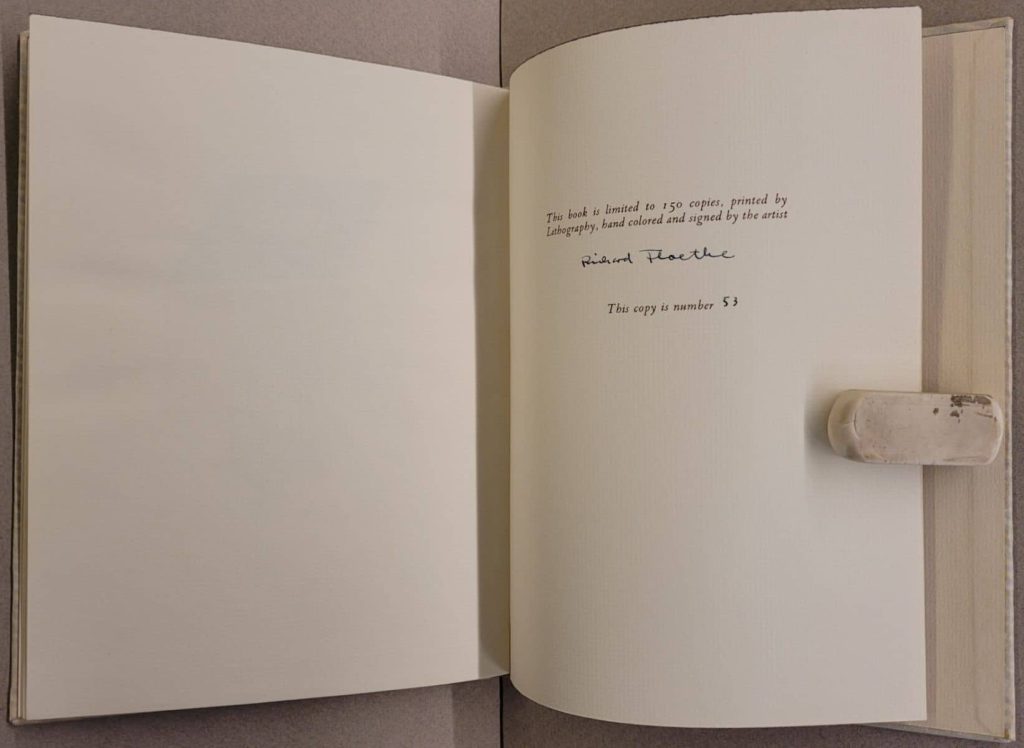 This book is limited to 150 copies, printed by
Lithography, hand colored and signed by the artist
Richard Floethe
This copy is number 53